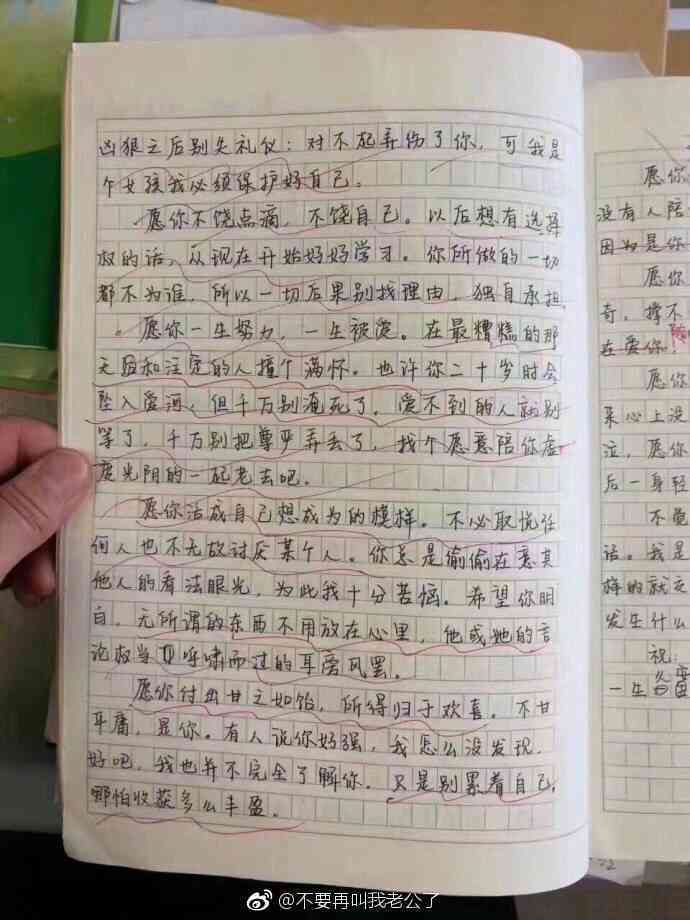 凶狠之后别失礼仪：对不起弄伤了你，可我是
个女孩我必须保护好自己。
愿你不饶点滴，不饶自己。以后想有选择
权的话，从现在开始好好学习。你所做的一切
都不为谁，所以一切后果别找理由，独自承担。
愿你一生努力，一生被爱。在最糟糕的那
天跟和注定的人撞个满怀。也许你二十岁时会
坠入爱河，但千万别淹死了，爱不到的人就别
等了，千万别把尊严弄丢了，找个愿意陪你虚
度光阴的一起老去吧。
愿你活成自己想成为的模样。不必取悦任
何人也不无故讨厌某个人。你总是偷偷在意其
他人的看法眼光，为此我十分苦恼。希望你明
白，无所谓的东西不用放在心里，他或她的言
论权当呼啸而过的耳旁风罢。
愿你付出甘之如饴，所得归于欢喜。不甘
平庸，是你。有人说你好强，我怎么没发现，
好吧，我也并不完全了解你。只是别累着自己，
哪怕收获多么丰盈。
愿你
没有人陪
因为是你
愿你
奇，撑不
在爱你
愿你
亲心上没
泣，愿你
后一身轻
不觉
话。我是
样的就交
发生什么
祝：
一生
@不要再叫我老公了